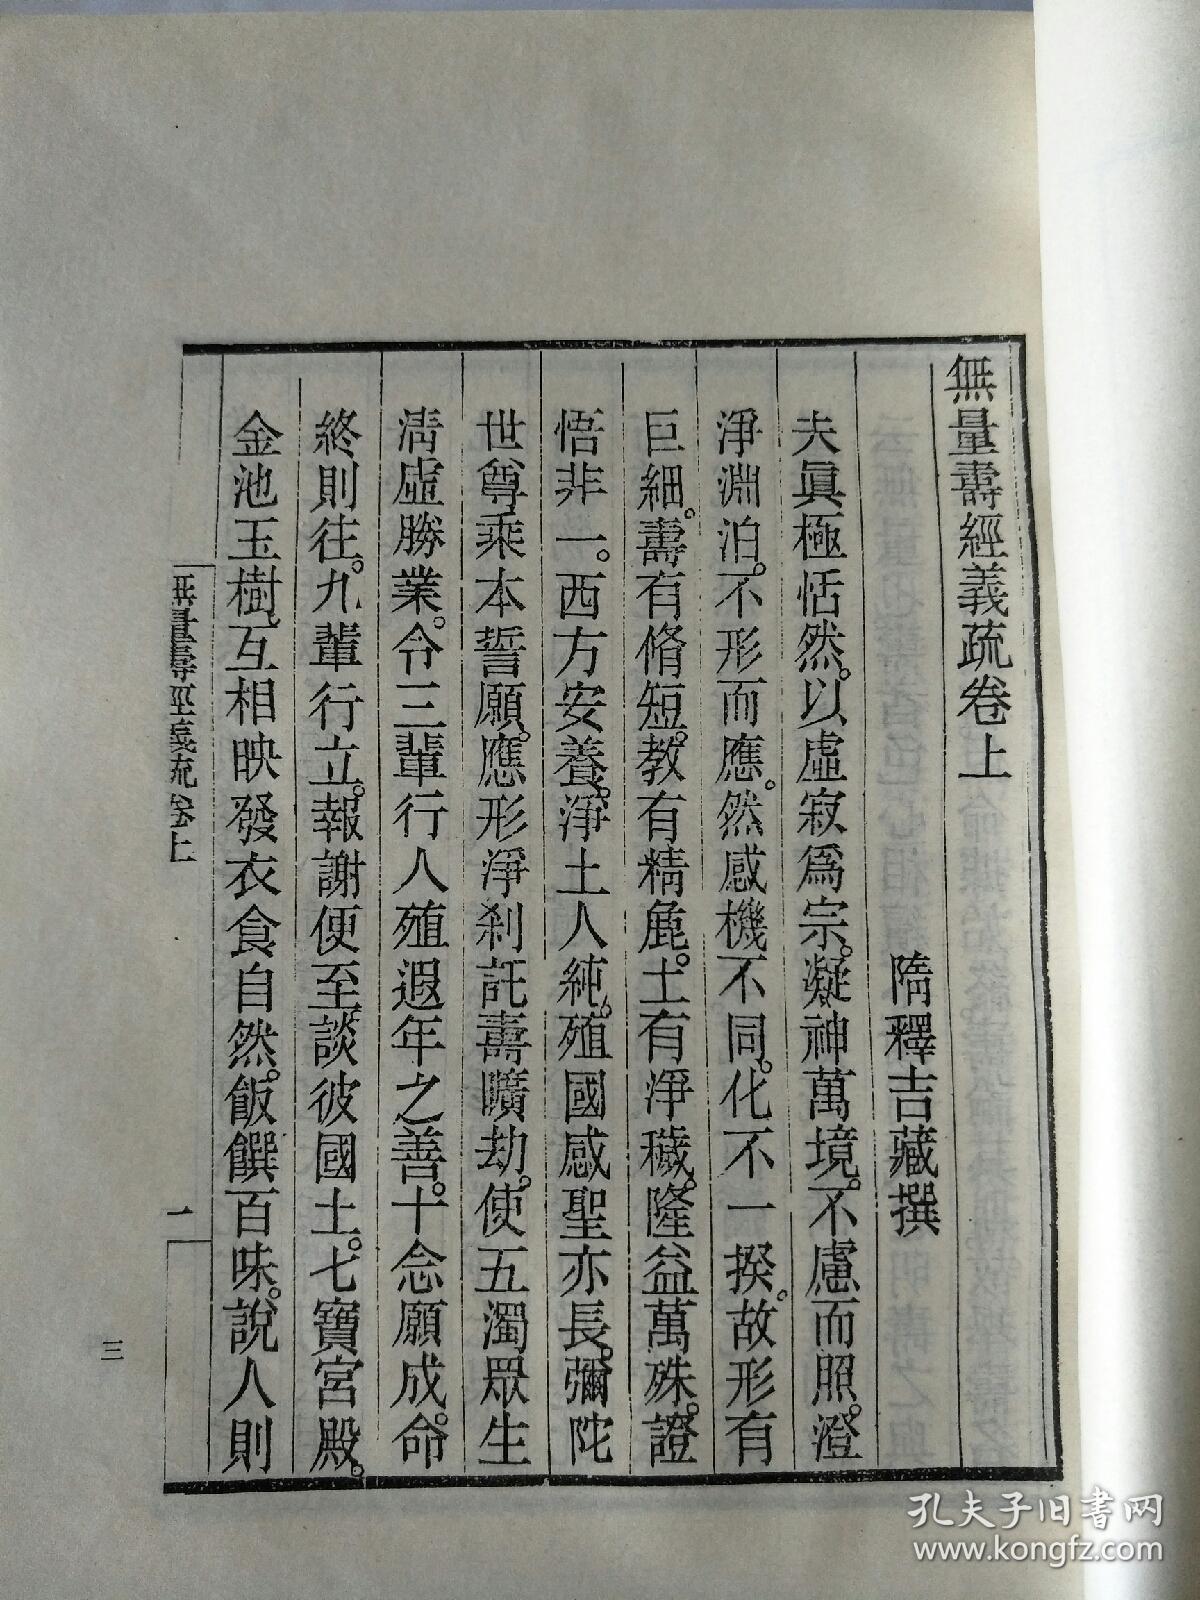 無量壽經義疏卷上
隋釋吉藏撰
夫眞極恬然。以虛寂爲宗。凝神萬境。不慮而照。澄
淨淵泊。不形而應。然感機不同。化不一揆。故形有
巨細。壽有脩短。教有精麁。土有淨穢。隆益萬殊。證
悟非一。西方安養。淨土人純。殖國感聖亦長。彌陀
世尊乘本誓願。應形淨刹。託壽曠劫。使五濁眾生
淸虛勝業。令三輩行人殖遐年之善。十念願成。命
終則往。九輩行立。報謝便至。談彼國土。七寶宮殿。
金池玉樹。互相映發。衣食自然。飯饌百味。說人則
無量壽經義疏卷上
一
三
孔夫子旧书网
www.kongfz.com